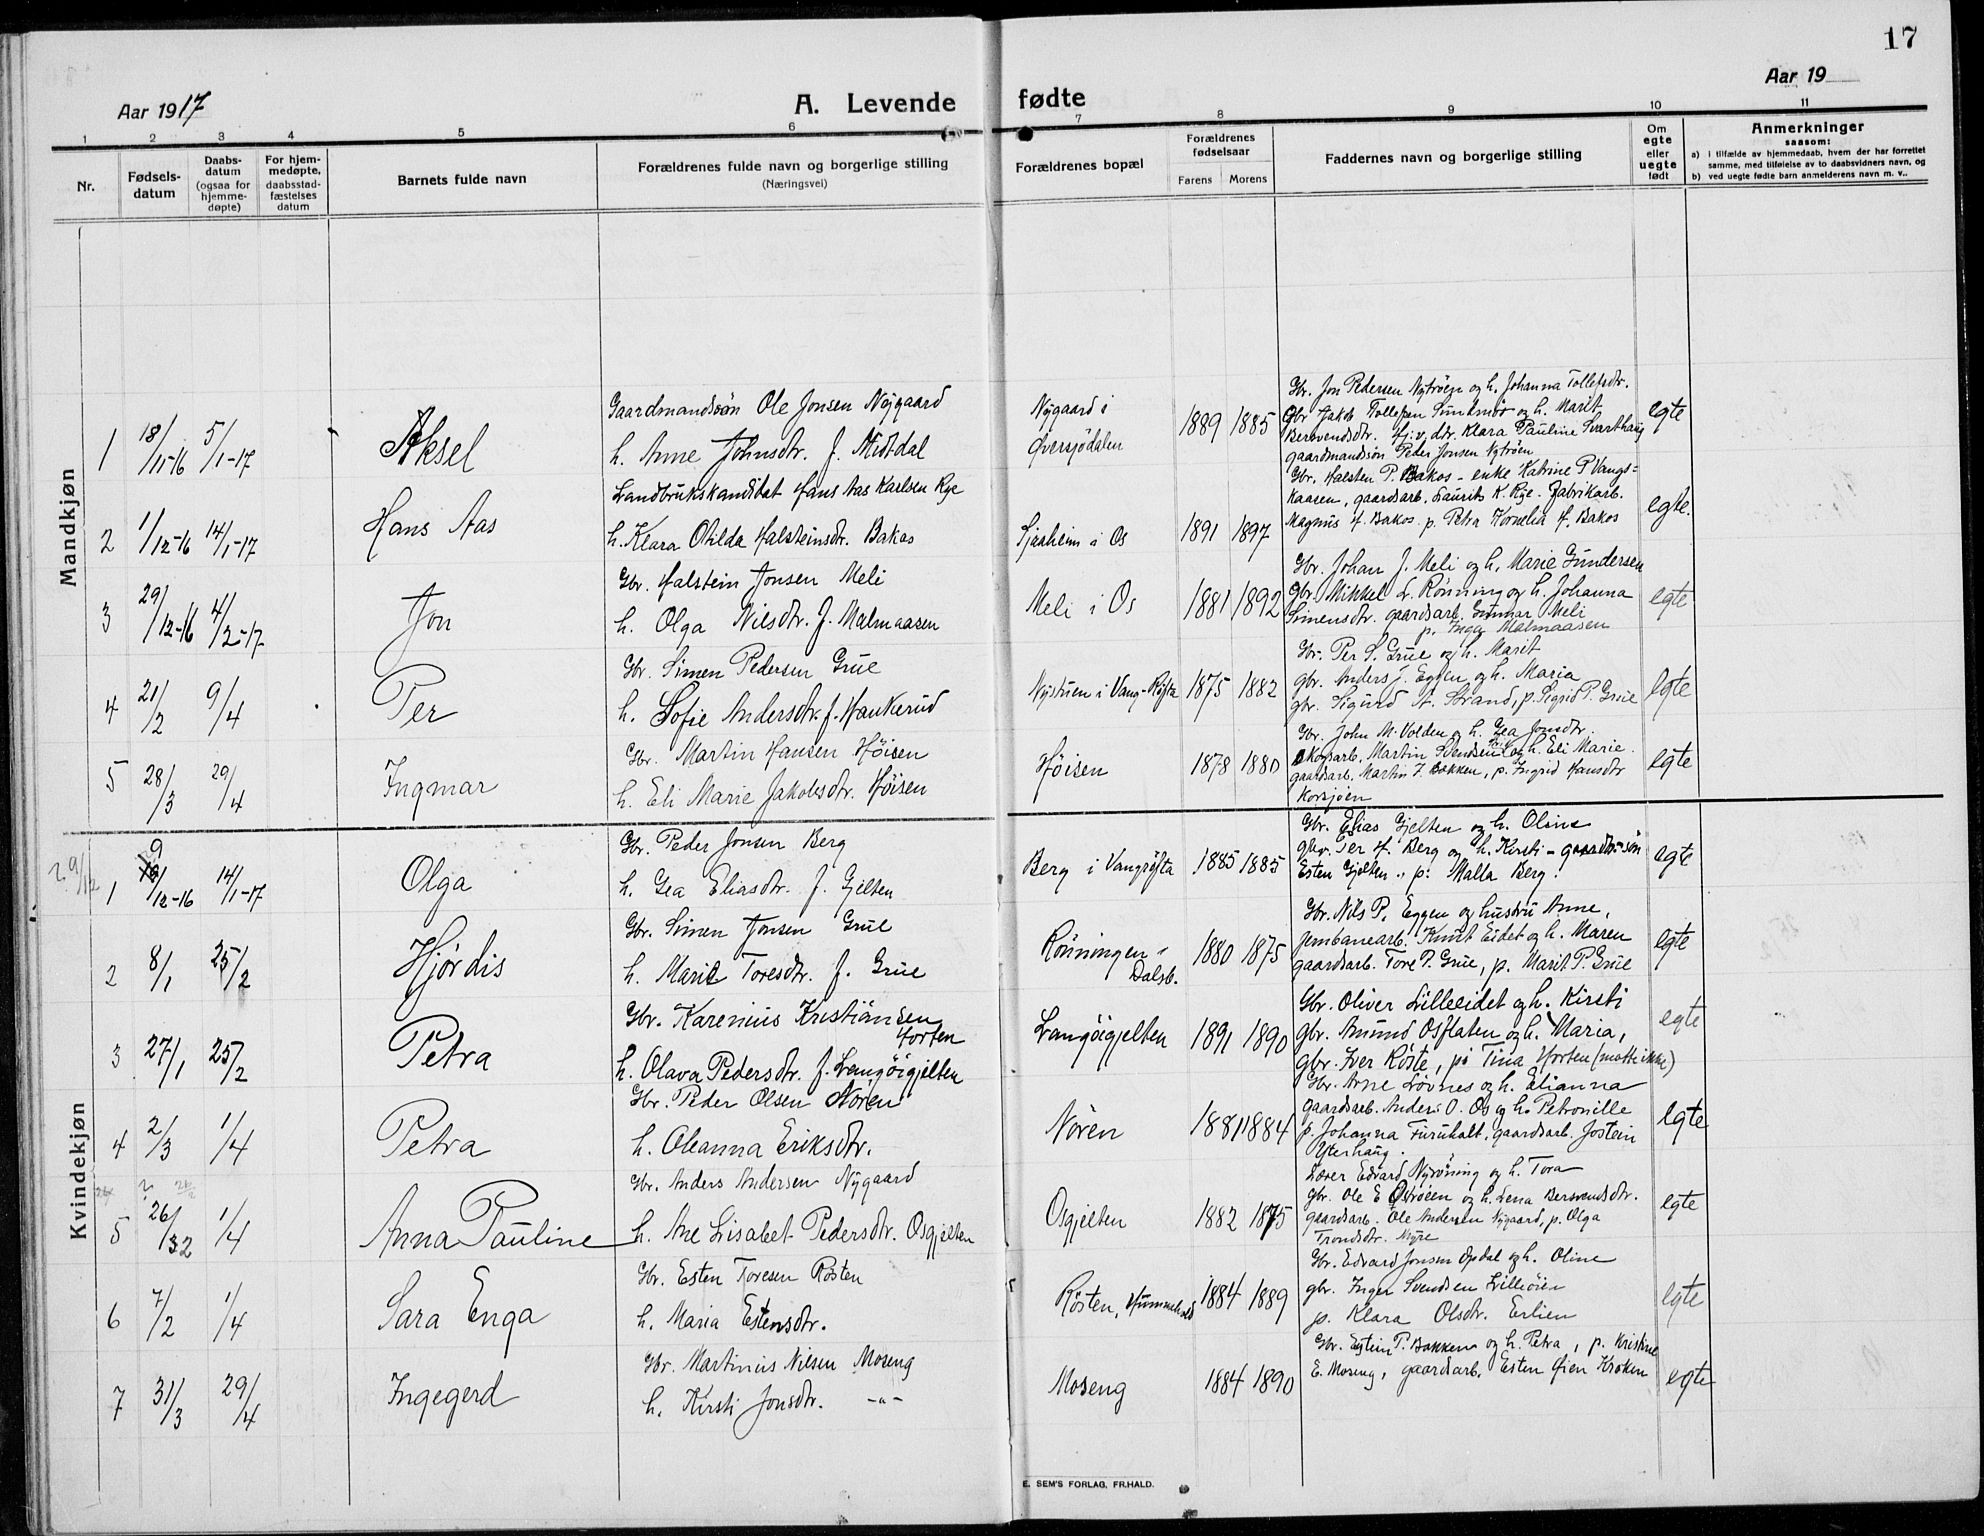 17
Aar 1917
A. Levende fødte
Aar 19
1 2 3 4 5 6 7 8 9 10 11
Nr.
Fødsels-
datum
Daabs-
datum
(ogsaa for
hjemme-
døpte)
For hjem-
medøpte,
daabsstad-
fæstelses
datum
Barnets fulde navn
Forældrenes fulde navn og borgerlige stilling
(Næringsvei)
Forældrenes bopæl
Forældrenes
fødselsaar
Farens Morens
Faddernes navn og borgerlige stilling
Om
egte
eller
uegte
født
Anmerkninger
saasom:
a) i tilfælde av hjemmedaab, hvem der har forrettet
samme, med tilføielse av to daabsvidners navn, og
b) ved uegte fødte barn anmelderens navn m. v..
Mandkjøn
1 18/11-16 5/1-17 Aksel
Gaardmandssøn Ole Jonsen Nygaard
h. Anne Johnsdtr. f. Midtdal
Nygaard i
Øversjødalen
1889 1885
Gbr. Jon Pedersen Nytrøen og h. Johanna Tollefsdtr.
Gbr Jakob Tollefsen Sundmør og h. Marit
Bersvendsdtr. Hj.v. dtr. Klara Pauline Svarthaug
gaardmandssøn Peder Jonsen Nytrøen
egte
2 1/12-16 14/1-17 Hans Aas
Landbrukskandidat Hans Aas Karlsen Rye
h. Klara Otilda Halsteinsdtr. Bakos
Sjaaheim i Os
1891 1897
Gbr. Halsten P. Bakos - enke Katrine P. Vangs-
kaasen, gaardsarb. Laurits K. Rye. Fabrikarb.
Magnus H. Bakos. p. Petra Kornelia H. Bakos
egte.
3 29/12-16 4/2-17 Jon
Gbr. Halstein Jonsen Meli
h. Olga Nilsdtr. f. Malmaasen
Meli i Os
1881 1892
Gbr. Johan J. Meli og h. Marie Gundersen
Gbr. Mikkel L. Rønning og h. Johanna
Simensdtr. gaardsarb. Gunnar Meli
p. Inga Malmaasen
egte
4 21/2 9/4 Per
Gbr. Simen Pedersen Grue
h. Sofie Andersdtr. f. Haukerud
Nystuen i Vang-Røfta
1875 1882
Gbr. Per S. Grue og h. Marit
gbr. Anders J. Eggen og h. Maria
gbr. Sigurd A. Strand, p. Sigrid P. Grue
egte
5 28/3 29/4 Ingmar
Gbr. Martin Hansen Høisen
h. Eli Marie Jakobsdtr. Høisen
Høisen
1878 1880
Gbr. John M. Volden og h. Gea Jonsdtr.
Skogsarb. Martin Svendsen og h. Eli Marie.
gaardsarb. Martin J. Bakken, p. Ingrid Hansdtr
Korsjøen
egte
Kvindekjøn
1 9/12-16 14/1-17 Olga
Gbr. Peder Jonsen Berg
h. Gea Eliasdtr. f. Gjelten
Berg i Vangrøfta
1885 1885
Gbr. Elias Gjelten og h. Oline
gbr. Per H. Berg og h. Kirsti - gaardm-søn
Esten Gjelten., p. Malla Berg.
egte
2 8/1 25/2 Hjørdis
Gbr. Simen Jonsen Grue
h. Marit Toresdtr. f. Grue
Rønningen i
Dalsb.
1880 1875
Gbr. Nils P. Eggen og hustru Anne,
jernbanearb. Knut Eidet og h. Maren
gaardsarb. Tore P. Grue, p. Marit P. Grue
egte
3 27/1 25/2 Petra
Gbr. Karenius Kristiansen
Horten
h. Olava Pedersdtr. f. Langøigjelten
Langøigjelten
1891 1890
Gbr. Oliver Lilleeidet og h. Kirsti
gbr. Amund Osflaten og h. Maria,
gbr. Iver Røste, pi Tina Horten (møtte ikke)
egte
4 2/3 1/4 Petra
Gbr. Peder Olsen Nøren
h. Oleanna Eriksdtr.
Nøren
1881 1884
Gbr. Arne Løvnes og h. Elianna
gaardsarb. Anders O. Os og h. Petronille
p. Johanna Furuholt, gaardsarb. Jostein
Ytterhaug.
egte
5 26/2 1/4 Anna Pauline
Gbr. Anders Andersen Nygaard
h. Ane Lisabet Pedersdtr. Osgjelten
Osgjelten
1882 1875
Lærer Edvard Nyrønning og h. Tora
Gbr. Ole E Ostrøen og h. Lena Bersvendsdtr.
gaardsarb. Ole Andersen Nygaard, p. Olga
Trondsdtr. Myre
egte
6 7/2 1/4 Sara Enga
Gbr. Esten Toresen Røsten
h. Maria Estensdtr.
Røsten, Hummelvold
1884 1889
Gbr. Edvard Jonsen Opdal og h. Oline
gbr. Inger Svendsen Lilleøien
p. Klara Olsdtr. Erlien
egte
7 31/3 29/4 Ingegerd
Gbr. Martinus Nilsen Moseng
h. Kirsti Jonsdtr. -"-
Moseng
1884 1890
Gbr. Estein P. Bakken og h. Petra, p. Kristine
E. Moseng, gaardsarb. Esten Øien Kroken
egte
E. SEM'S FORLAG, FR.HALD.